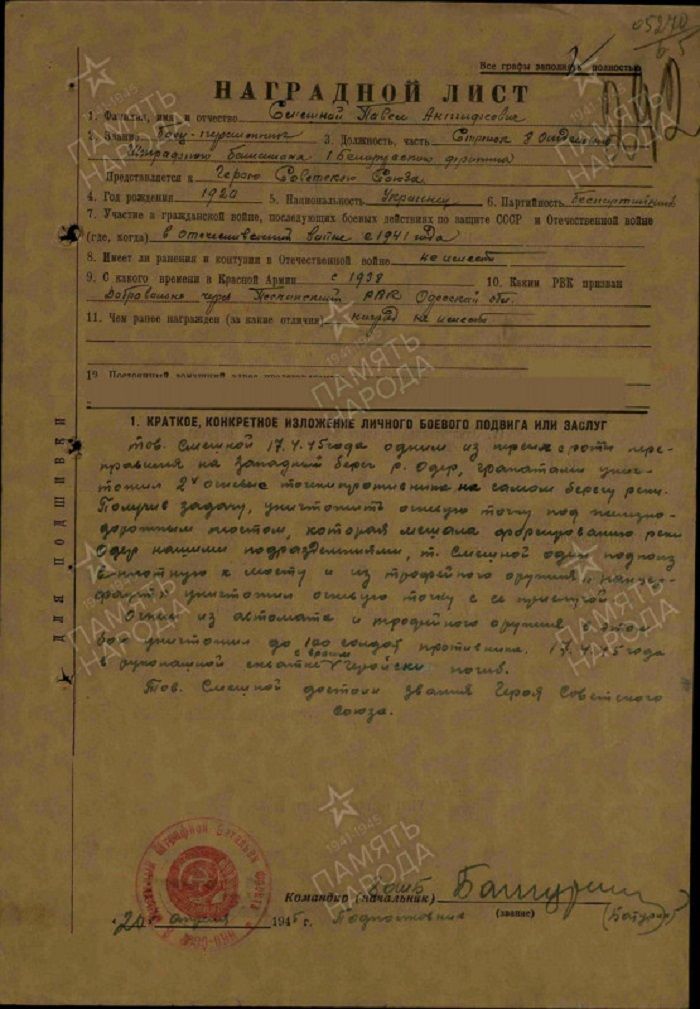 05270
65
Все графы заполнять полностью
НАГРАДНОЙ ЛИСТ
1. Фамилия, имя и отчество Смешной Павел Антифеевич
2. Звание Боец-переменник 3. Должность, часть Стрелок 8 Отдельного
Штрафного батальона 1 Белорусского фронта
Представляется к Герою Советского Союза
4. Год рождения 1920 5. Национальность Украинец 6. Партийность Беспартийный
7. Участие в гражданской войне, последующих боевых действиях по защите СССР и Отечественной войне
(где, когда) в отечественной войне с 1941 года
8. Имеет ли ранения и контузии в Отечественной войне не имеет
9. С какого времени в Красной Армии с 1938 10. Каким РВК призван
Добровольно через РВК Одесской обл.
11. Чем ранее награжден (за какие отличия) наград не имеет
1. КРАТКОЕ, КОНКРЕТНОЕ ИЗЛОЖЕНИЕ ЛИЧНОГО БОЕВОГО ПОДВИГА ИЛИ ЗАСЛУГ
тов. Смешной 17.4.45 года одним из первых роты пере-
правился на западный берег р. Одер, гранатами унич-
тожил 2 огневые точки противника на самом берегу реки.
Получив задачу, уничтожить огневую точку под железно-
дорожным мостом, которая мешала форсированию реки
Одер нашими подразделениями, т. Смешной один подполз
вплотную к мосту и из трофейного оружия "панцер-
фауст" уничтожил огневую точку с ее прислугой.
Огнем из автомата и трофейного оружия в этом
бою уничтожил до 100 солдат противника. 17.4.45 года
в рукопашной схватке с врагом геройски погиб.
Тов. Смешной достоин звания Героя Советского
Союза.
ДЛЯ ПОДШИВКИ
Командир (начальник) 8 ОШБ Батурин
Подполковник (звание) (Батурин)
"20" апреля 1945 г.
ПАМЯТЬ
НАРОДА
1941-1945